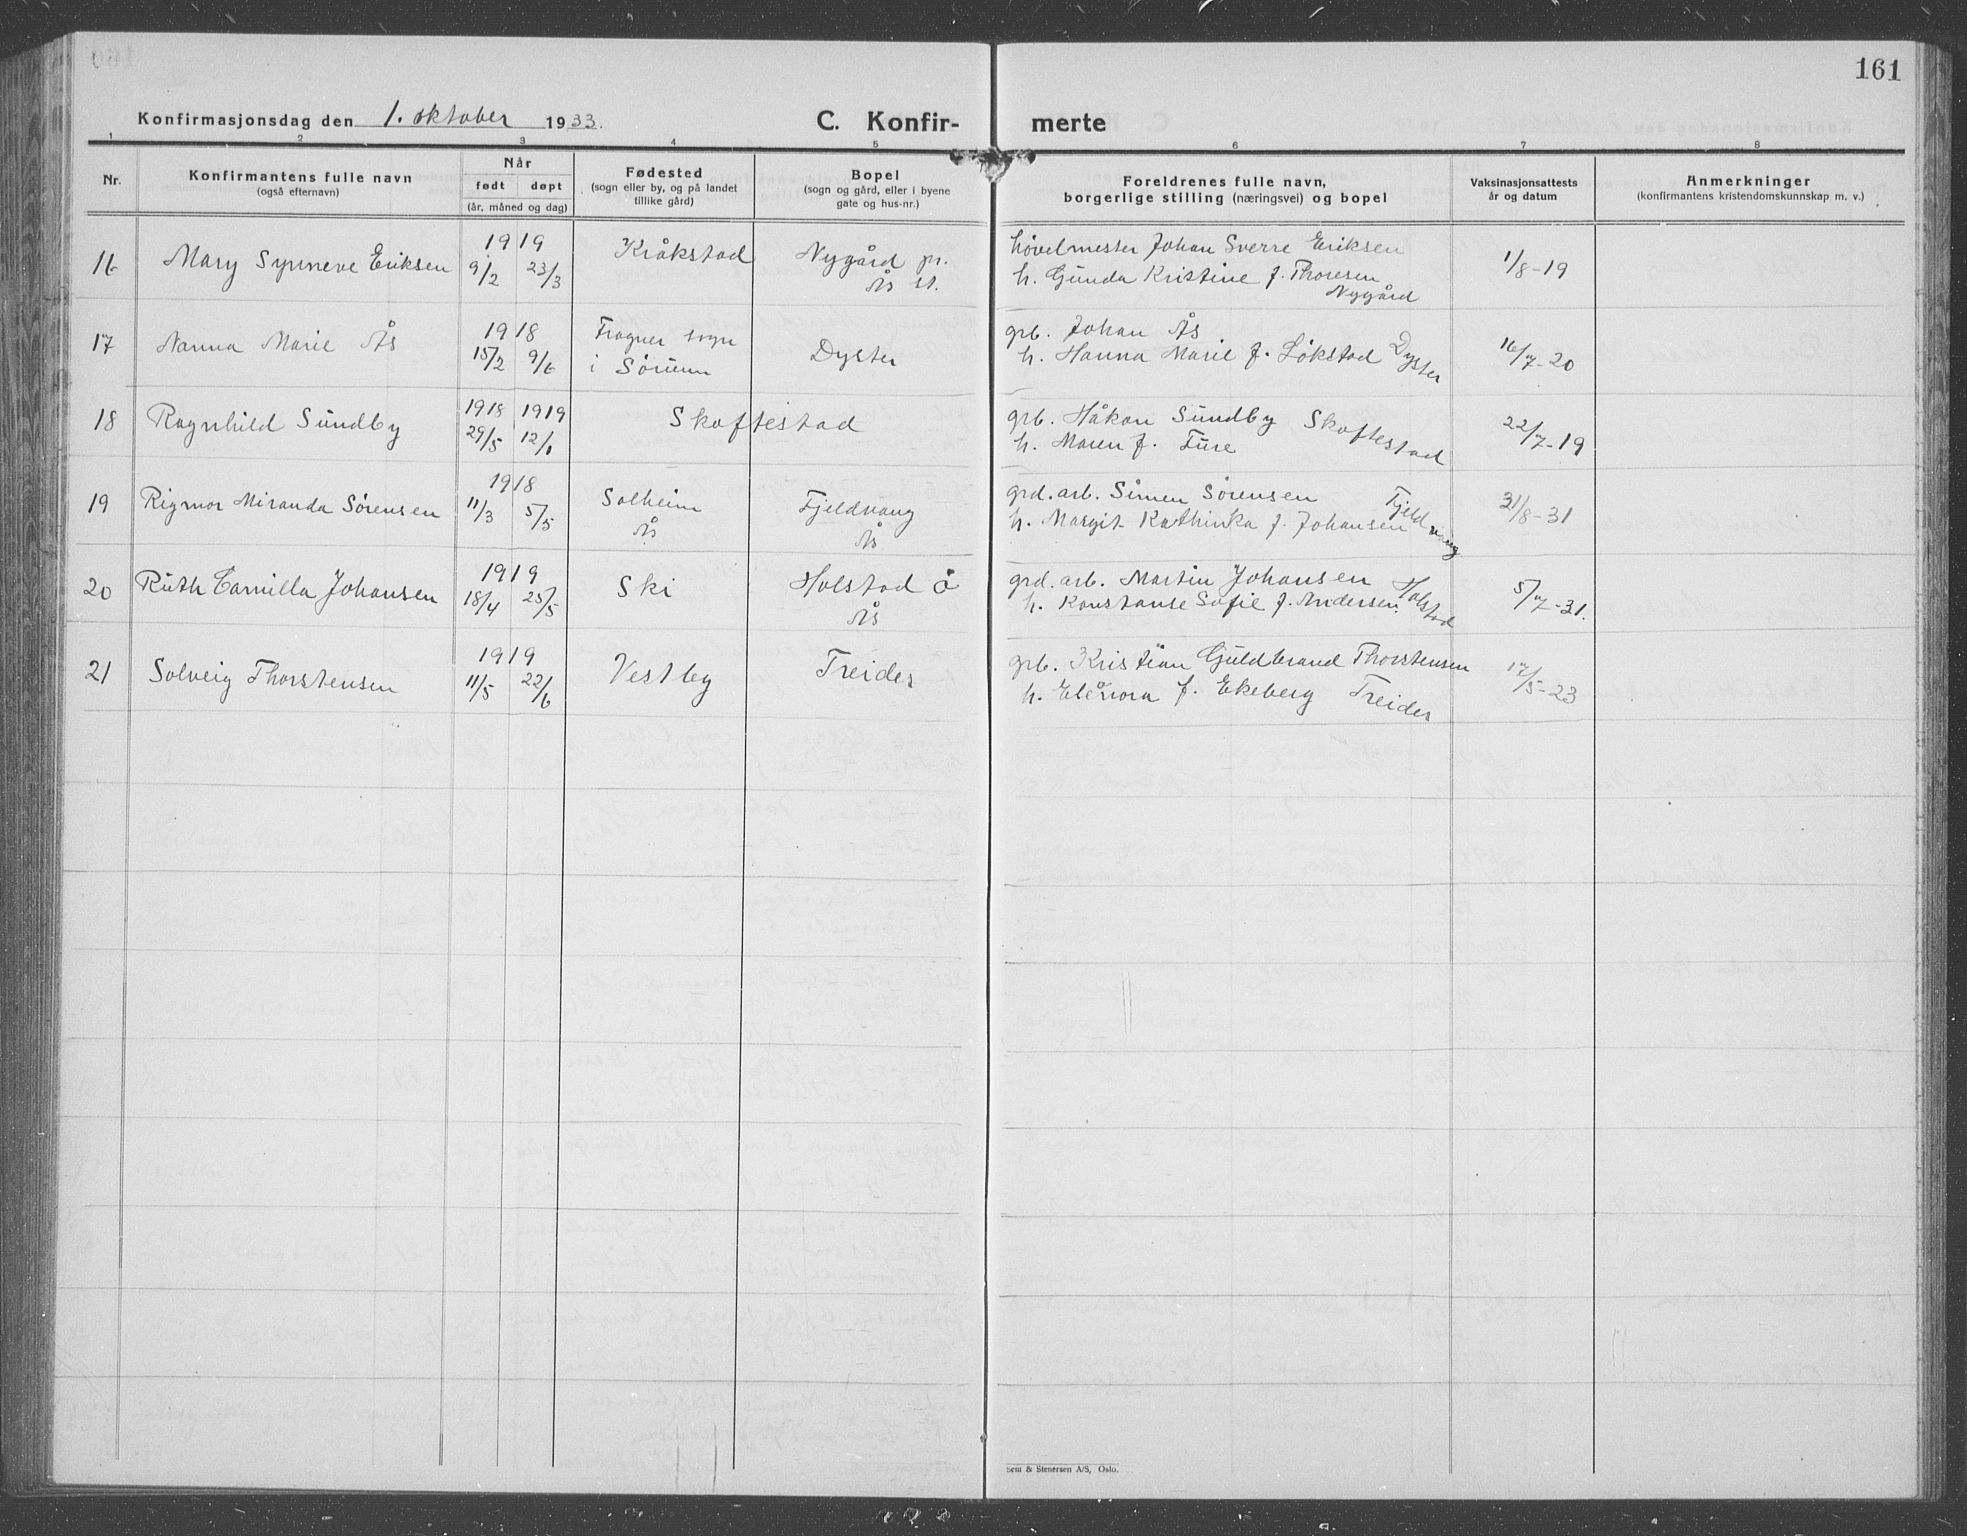 161
Konfirmasjonsdag den 1. oktober 1933.
C. Konfir- merte
1 2 3 4 5 6 7 8
Nr.
Konfirmantens fulle navn
(også efternavn)
Når
født døpt
(år, måned og dag)
Fødested
(sogn eller by, og på landet
tillike gård)
Bopel
(sogn og gård, eller i byene
gate og hus-nr.)
Foreldrenes fulle navn,
borgerlige stilling (næringsvei) og bopel
Vaksinasjonsattests
år og datum
Anmerkninger
(konfirmantens kristendomskunnskap m. v.)
16 Mary Synneve Eriksen 1919 9/2 23/3 Kråkstad Nygård pr.
Ås st.
høvelmester Johan Sverre Eriksen
h. Gunda Kristine f. Thoresen
Nygård
1/8-19
17 Nanna Marie Ås 1918 15/2 9/6 Frogner sogn
i Sørum
Dyster
grb. Johan Ås
h. Hanna Marie f. Løkstad Dyster
16/7-20
18 Ragnhild Sundby 1918 29/5 1919 12/1 Skoftestad
grb. Håkon Sundby Skoftestad
h. Maren f. Ture
22/7-19
19 Rigmor Miranda Sørensen 1918 11/3 5/5 Solheim
Ås
Fjeldvang
Ås
grd. arb. Simen Sørensen Fjeldvang
h. Margit Kathinka f. Johansen
31/8-31
20 Ruth Camilla Johansen 1919 18/4 25/5 Ski Holstad ö
Ås
grd. arb. Martin Johansen Holstad
h. Konstanse Sofie f. Andersen
5/7-31.
21 Solveig Thorstensen 1919 11/5 22/6 Vestby Treider
grb. Kristian Guldbrand Thorstensen
h. Elenora f. Ekeberg Treider
17/5-23
Sem & Stenersen A/S, Oslo.